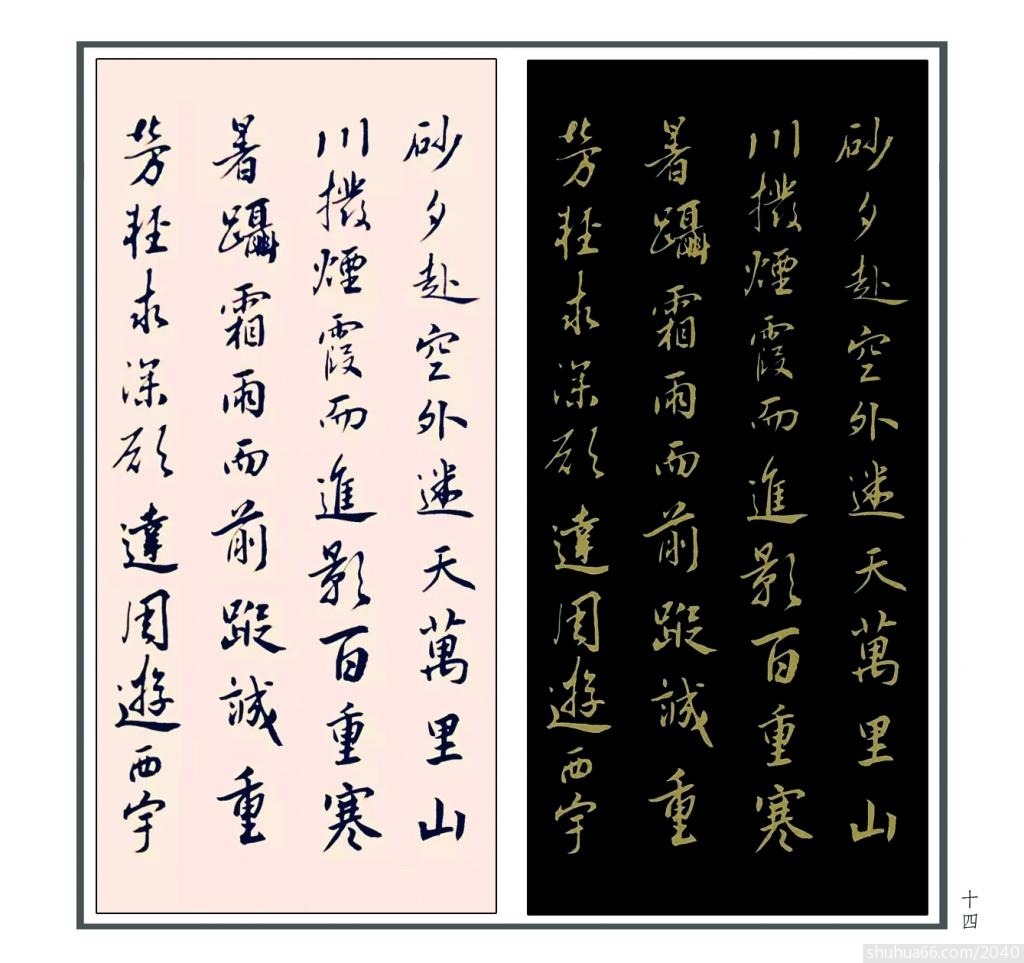 砂夕起空外迷天萬里山
川撥煙霞而進影百重寒
暑躡霜雨而前蹤誠重
勞輕求深願達周遊西宇
砂夕起空外迷天萬里山
川撥煙霞而進影百重寒
暑躡霜雨而前蹤誠重
勞輕求深願達周遊西宇
十四
shuhua66.com/2040